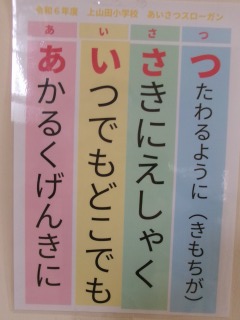 令和6年度　上山田小学校　あいさつスローガン
あ　い　さ　つ
あかるくげんきに
いつでもどこでも
さきにえしゃく
つたわるように（きもちが）